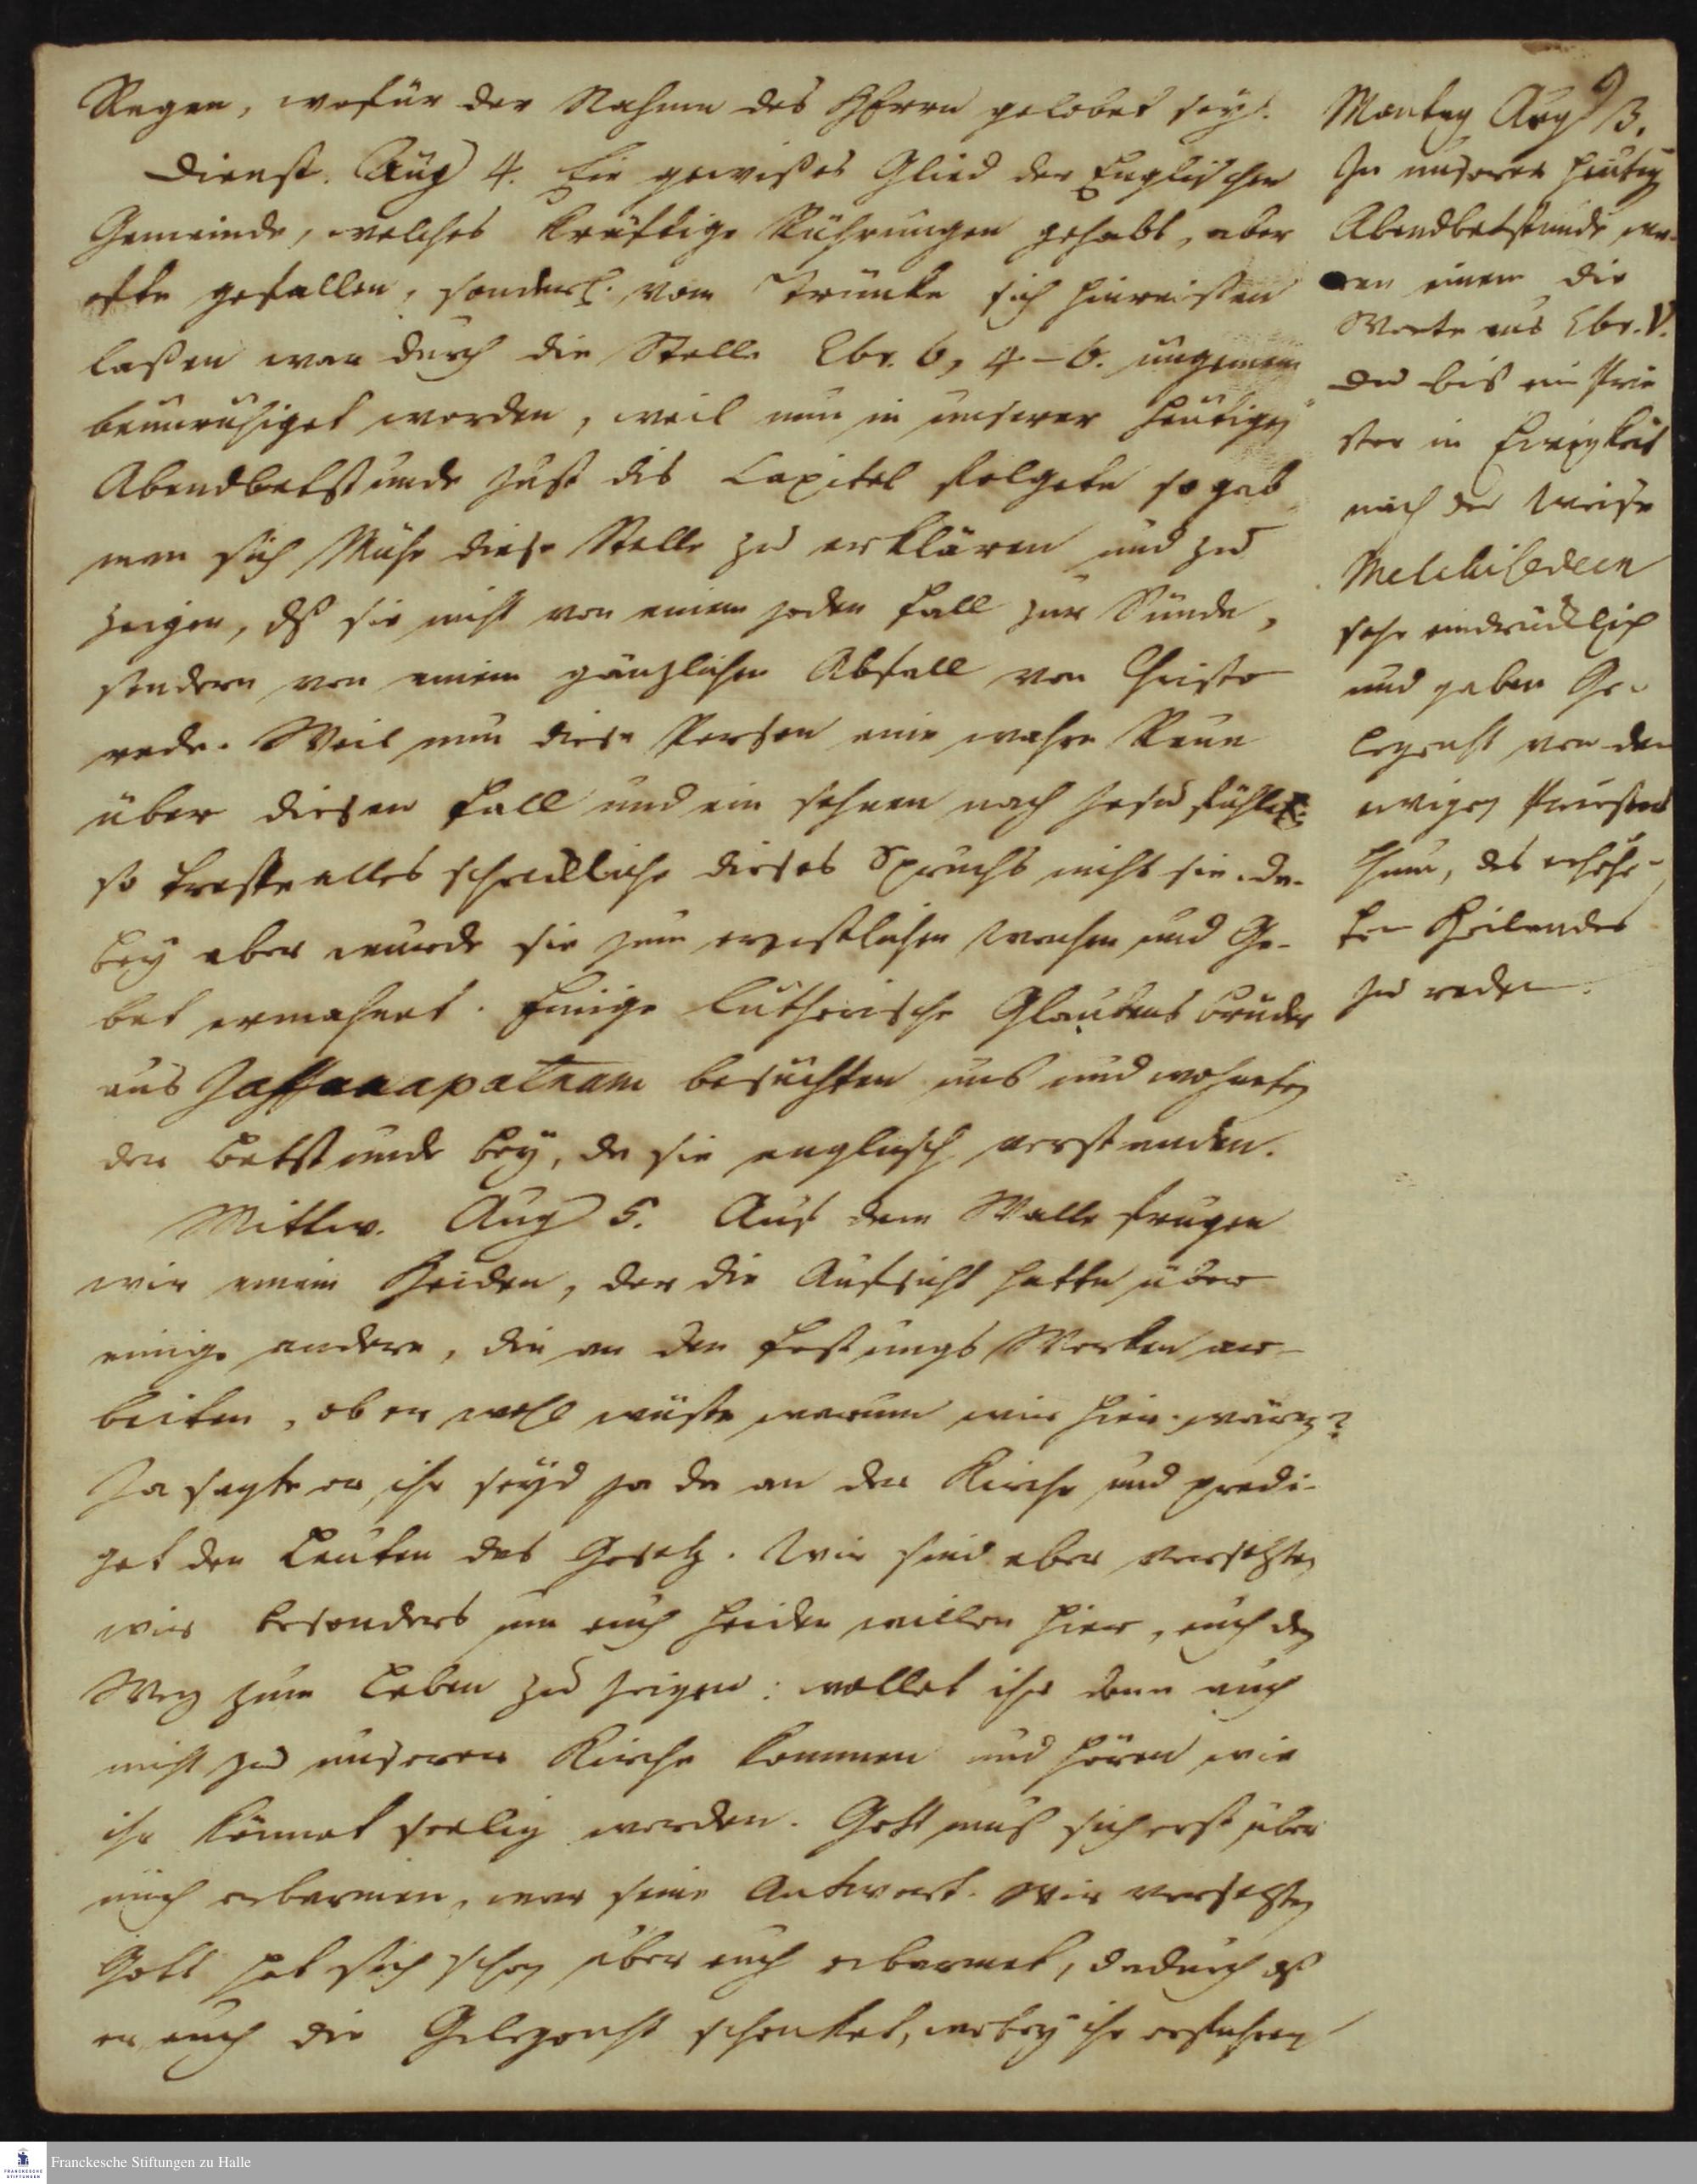 Regen, wofür der Nahme des HErrn gelobet sey.
Dienst. Aug 4. Ein gewißes Glied der Englischen
Gemeinde, welches kräftige Rührungen gehabt, aber
ofte gefallen, sonderl. vom Trunke sich hinreißen
laßen war durch die Stelle Ebr. 6, 4-6. ungemein
beunruhiget worden, weil nun in unserer heutigen
Abendbetstunde just dis Capitel folgete so gab
man sich Mühe diese Stelle zu erklären und zu
zeigen, dß sie nicht von einem jeden Fall zur Sünde,
sondern von einem gänzlichen Abfall von Christo
rede. Weil nun diese Person eine wahre Reue
über diesen Fall und ein sehnen nach Jesu fühlet
so treffe alles schreckliche dieses Spruchs nicht sie. da-
bey aber wurde sie zum ernstlichen Wachen und Ge-
bet ermahnet. Einige Lutherische Glaubens Brüder
aus Jaffanapatnam besuchten uns und wohneten
der Betstunde bey, da sie englisch verstanden.
Mittw. Aug 5. Auf dem Walle frugen
wir einem Heiden, der die Aufsicht hatte über
einige andere, die an den Festungs Werken ar-
beiten, ob er wohl wüste warum wir hier wären?
Ja sagte er, ihr seyd ja da an der Kirche und predi-
get den Leuten das Gesetz. Wir sind aber versetzten
wir besonders um euch Heiden willen hier, euch den
Weg zum Leben zu zeigen: wollet ihr denn auch
nicht zu unserer Kirche kommen und hören wie
ihr könnet seelig werden. Gott muß sich erst über
mich erbarmen, war seine Antwort. Wir versetzten
Gott hat sich schon über euch erbarmet, dadurch dß
er euch die Gelegenht schenket, wobey ihr erfahren
Montag Aug 3.
In unserer heutigen
Abendbetstunde wa-
ren einem die
Worte aus Ebr. V.
Du bist ein Prie
ster in Ewigkeit
nach der Weise
Melchisedeck
sehr eindrücklich
und gaben Ge-
legenht von dem
ewigen Priester
thum, des erhöhe-
ten Heilandes
zu reden.
Franckesche Stiftungen zu Halle
FRANCKESCHE
STIFTUNGEN